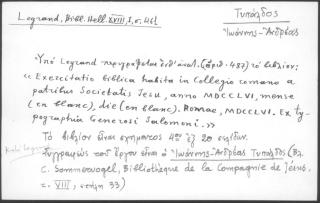 Legrand, Bibl. Hell. XVIII, I, σ. 461
Τυπάλδος
Ἰωάννης-Ἀνδρέας
Ὑπὸ Legrand περιγράφεται (ἀριθ. 487) τὸ βιβλίον:
«Exercitatio biblica habita in Collegio romano a
patribus Societatis Jesu, anno MDCCLVI, mense
(en blanc), die (en blanc). Romae, MDCCLVI. Ex ty-
pographia Generosi Salomoni.»
Τὸ βιβλίον εἶναι σχήματος 4ου ἐξ 20 σελίδων.
Συγγραφεὺς τοῦ ἔργου εἶναι ὁ Ἰωάννης-Ἀνδρέας Τυπάλδος (Βλ.
C. Sommervogel, Bibliothèque de la Compagnie de Jésus,
τ. VIII, στήλη 33)